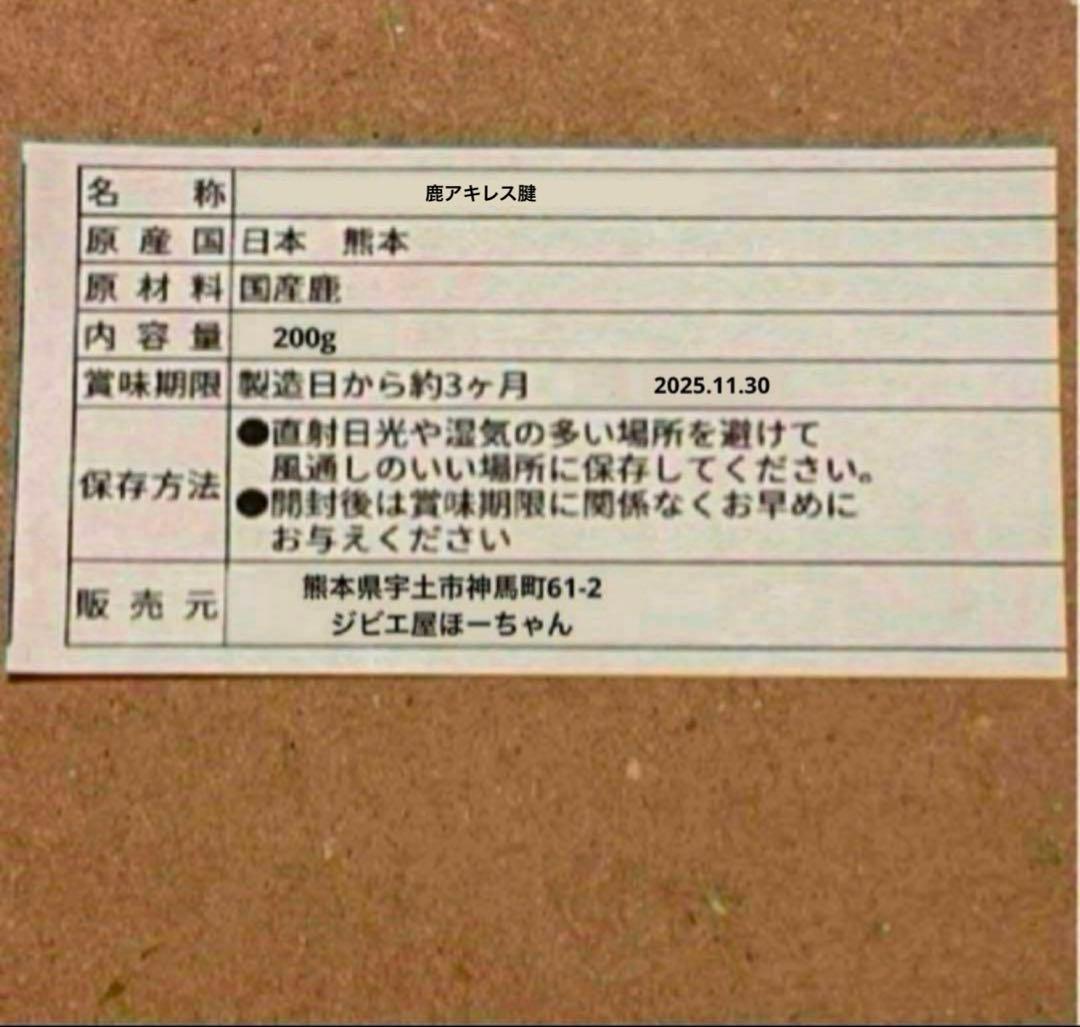 名称 鹿アキレス腱
原産国 日本 熊本
原材料 国産鹿
内容量 200g
賞味期限 製造日から約3ヶ月 2025.11.30
保存方法 ●直射日光や湿気の多い場所を避けて
風通しのいい場所に保存してください。
●開封後は賞味期限に関係なくお早めに
お与えください
販売元 熊本県宇土市神馬町61-2
ジビエ屋ほーちゃん